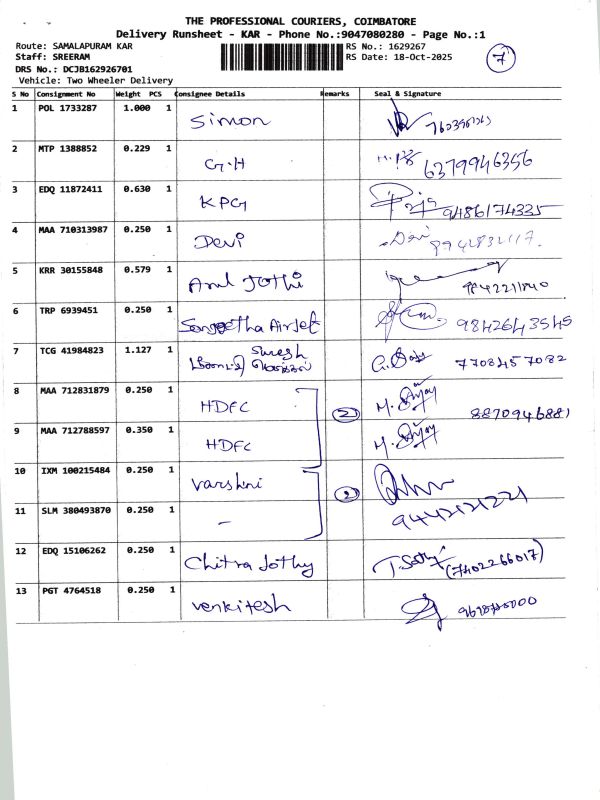 THE PROFESSIONAL COURIERS, COIMBATORE
Delivery Runsheet - KAR - Phone No.:9047080280 - Page No.:1
Route: SAMALAPURAM KAR
RS No.: 1629267
Staff: SREERAM
RS Date: 18-Oct-2025
7
DRS No.: DCJB162926701
Vehicle: Two Wheeler Delivery
S No Consignment No Weight PCS Consignee Details Remarks Seal & Signature
1 POL 1733287 1.000 1 Simon
2 MTP 1388852 0.229 1 G.H 6379946356
3 EDQ 11872411 0.630 1 KPG 9486174335
4 MAA 710313987 0.250 1 Devi Devi
5 KRR 30155848 0.579 1 Arul Jothi
6 TRP 6939451 0.250 1 Sangeetha Airjet 9842643545
7 TCG 41984823 1.127 1 Suresh 7708457082
8 MAA 712831879 0.250 1 HDFC 2 8870946881
9 MAA 712788597 0.350 1 HDFC
10 IXM 100215484 0.250 1 Varshini 2
11 SLM 380493870 0.250 1 - 9442121221
12 EDQ 15106262 0.250 1 Chitra Jothy (7402266017)
13 PGT 4764518 0.250 1 Venkitesh